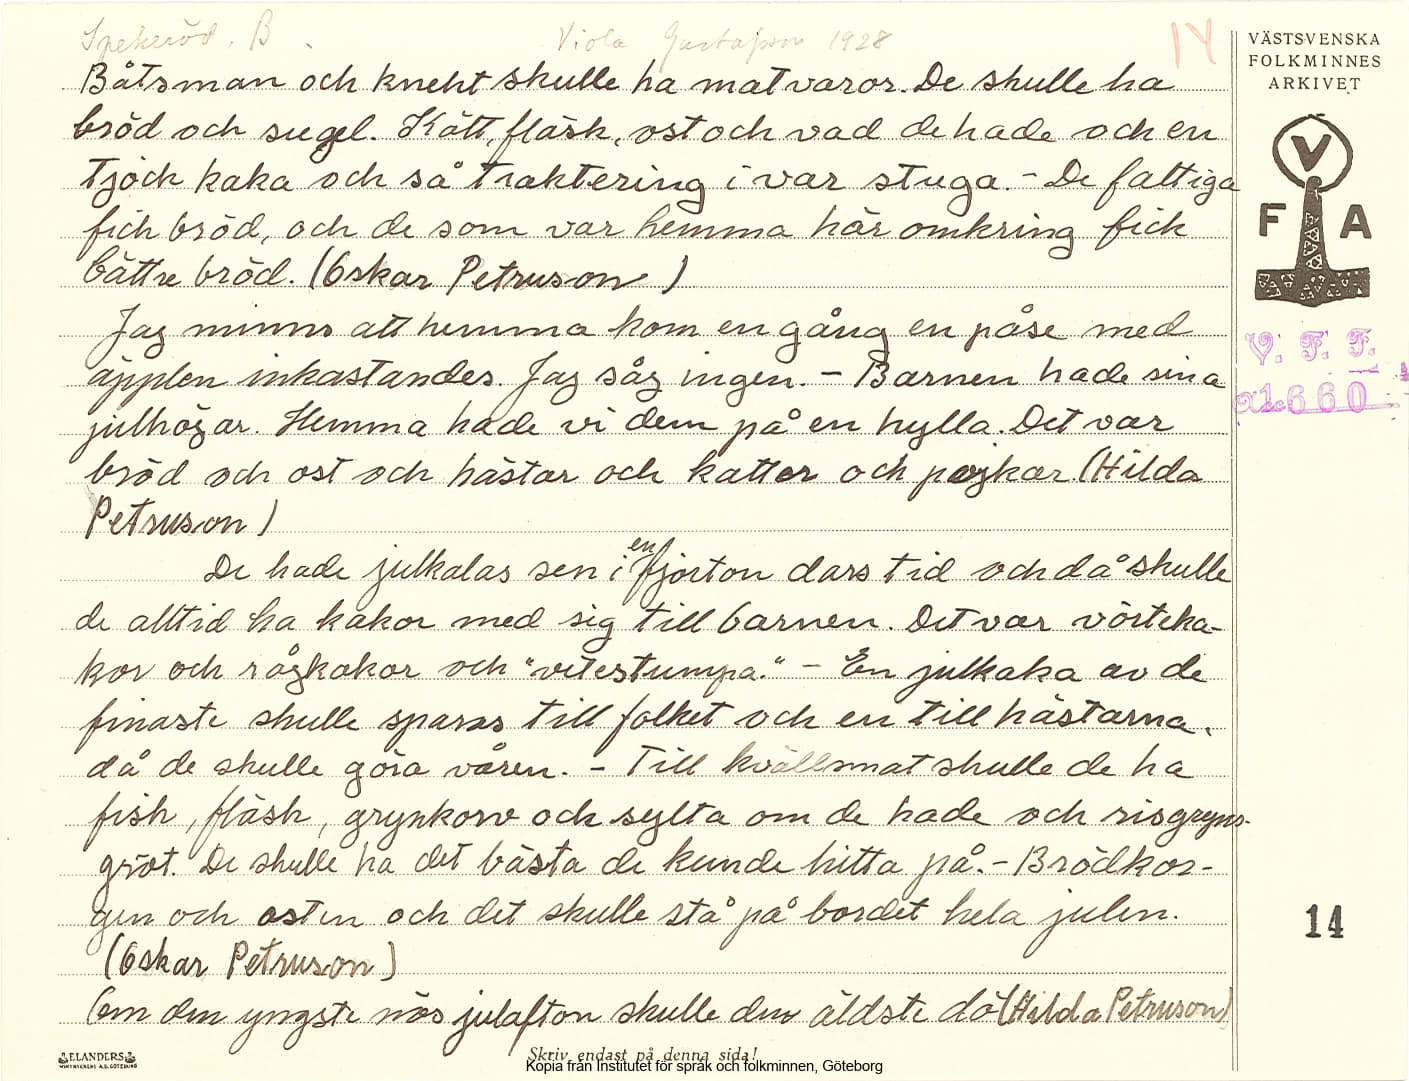 Spekeröd. B.
Viola Gustafsson 1928
14
VÄSTSVENSKA
FOLKMINNES
ARKIVET
V
F A
V. F. F.
660
Båtsman och kneht skulle ha matvaror. De skulle ha
bröd och sugel. Kött, fläsk, ost och vad de hade och en
tjock kaka och så traktering i var stuga. - De fattiga
fick bröd, och de som var hemma här omkring fick
bättre bröd. (Oskar Petruson)
Jag minns att hemma kom en gång en påse med
äpplen inkastandes. Jag såg ingen. - Barnen hade sina
julhögar. Hemma hade vi dem på en hylla. Det var
bröd och ost och hästar och kattor och pojkar. (Hilda
Petruson)
De hade julkalas sen i en fjorton dars tid och då skulle
de alltid ha kakor med sig till barnen. Det var vörteka-
kor och rågkakor och "vitestumpa." - En julkaka av de
finaste skulle sparas till folket och en till hästarna,
då de skulle göra våren. - Till kvällsmat skulle de ha
fisk, fläsk, grynkorv och sylta om de hade och risgryns-
gröt. De skulle ha det bästa de kunde hitta på. - Brödkor-
gen och osten och det skulle stå på bordet hela julen.
(Oskar Petruson)
Om den yngste nös julafton skulle den äldste dö (Hilda Petruson)
14
ELANDERS
Skriv endast på denna sida!
Kopia från Institutet för språk och folkminnen, Göteborg